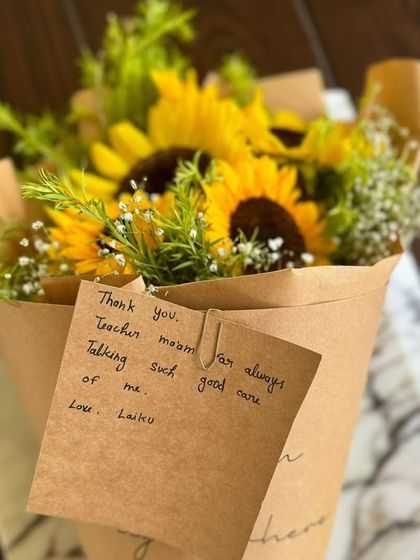 Thank you.
Teacher ma'am for always
Talking such good care
of me.
Love. Laiku
here